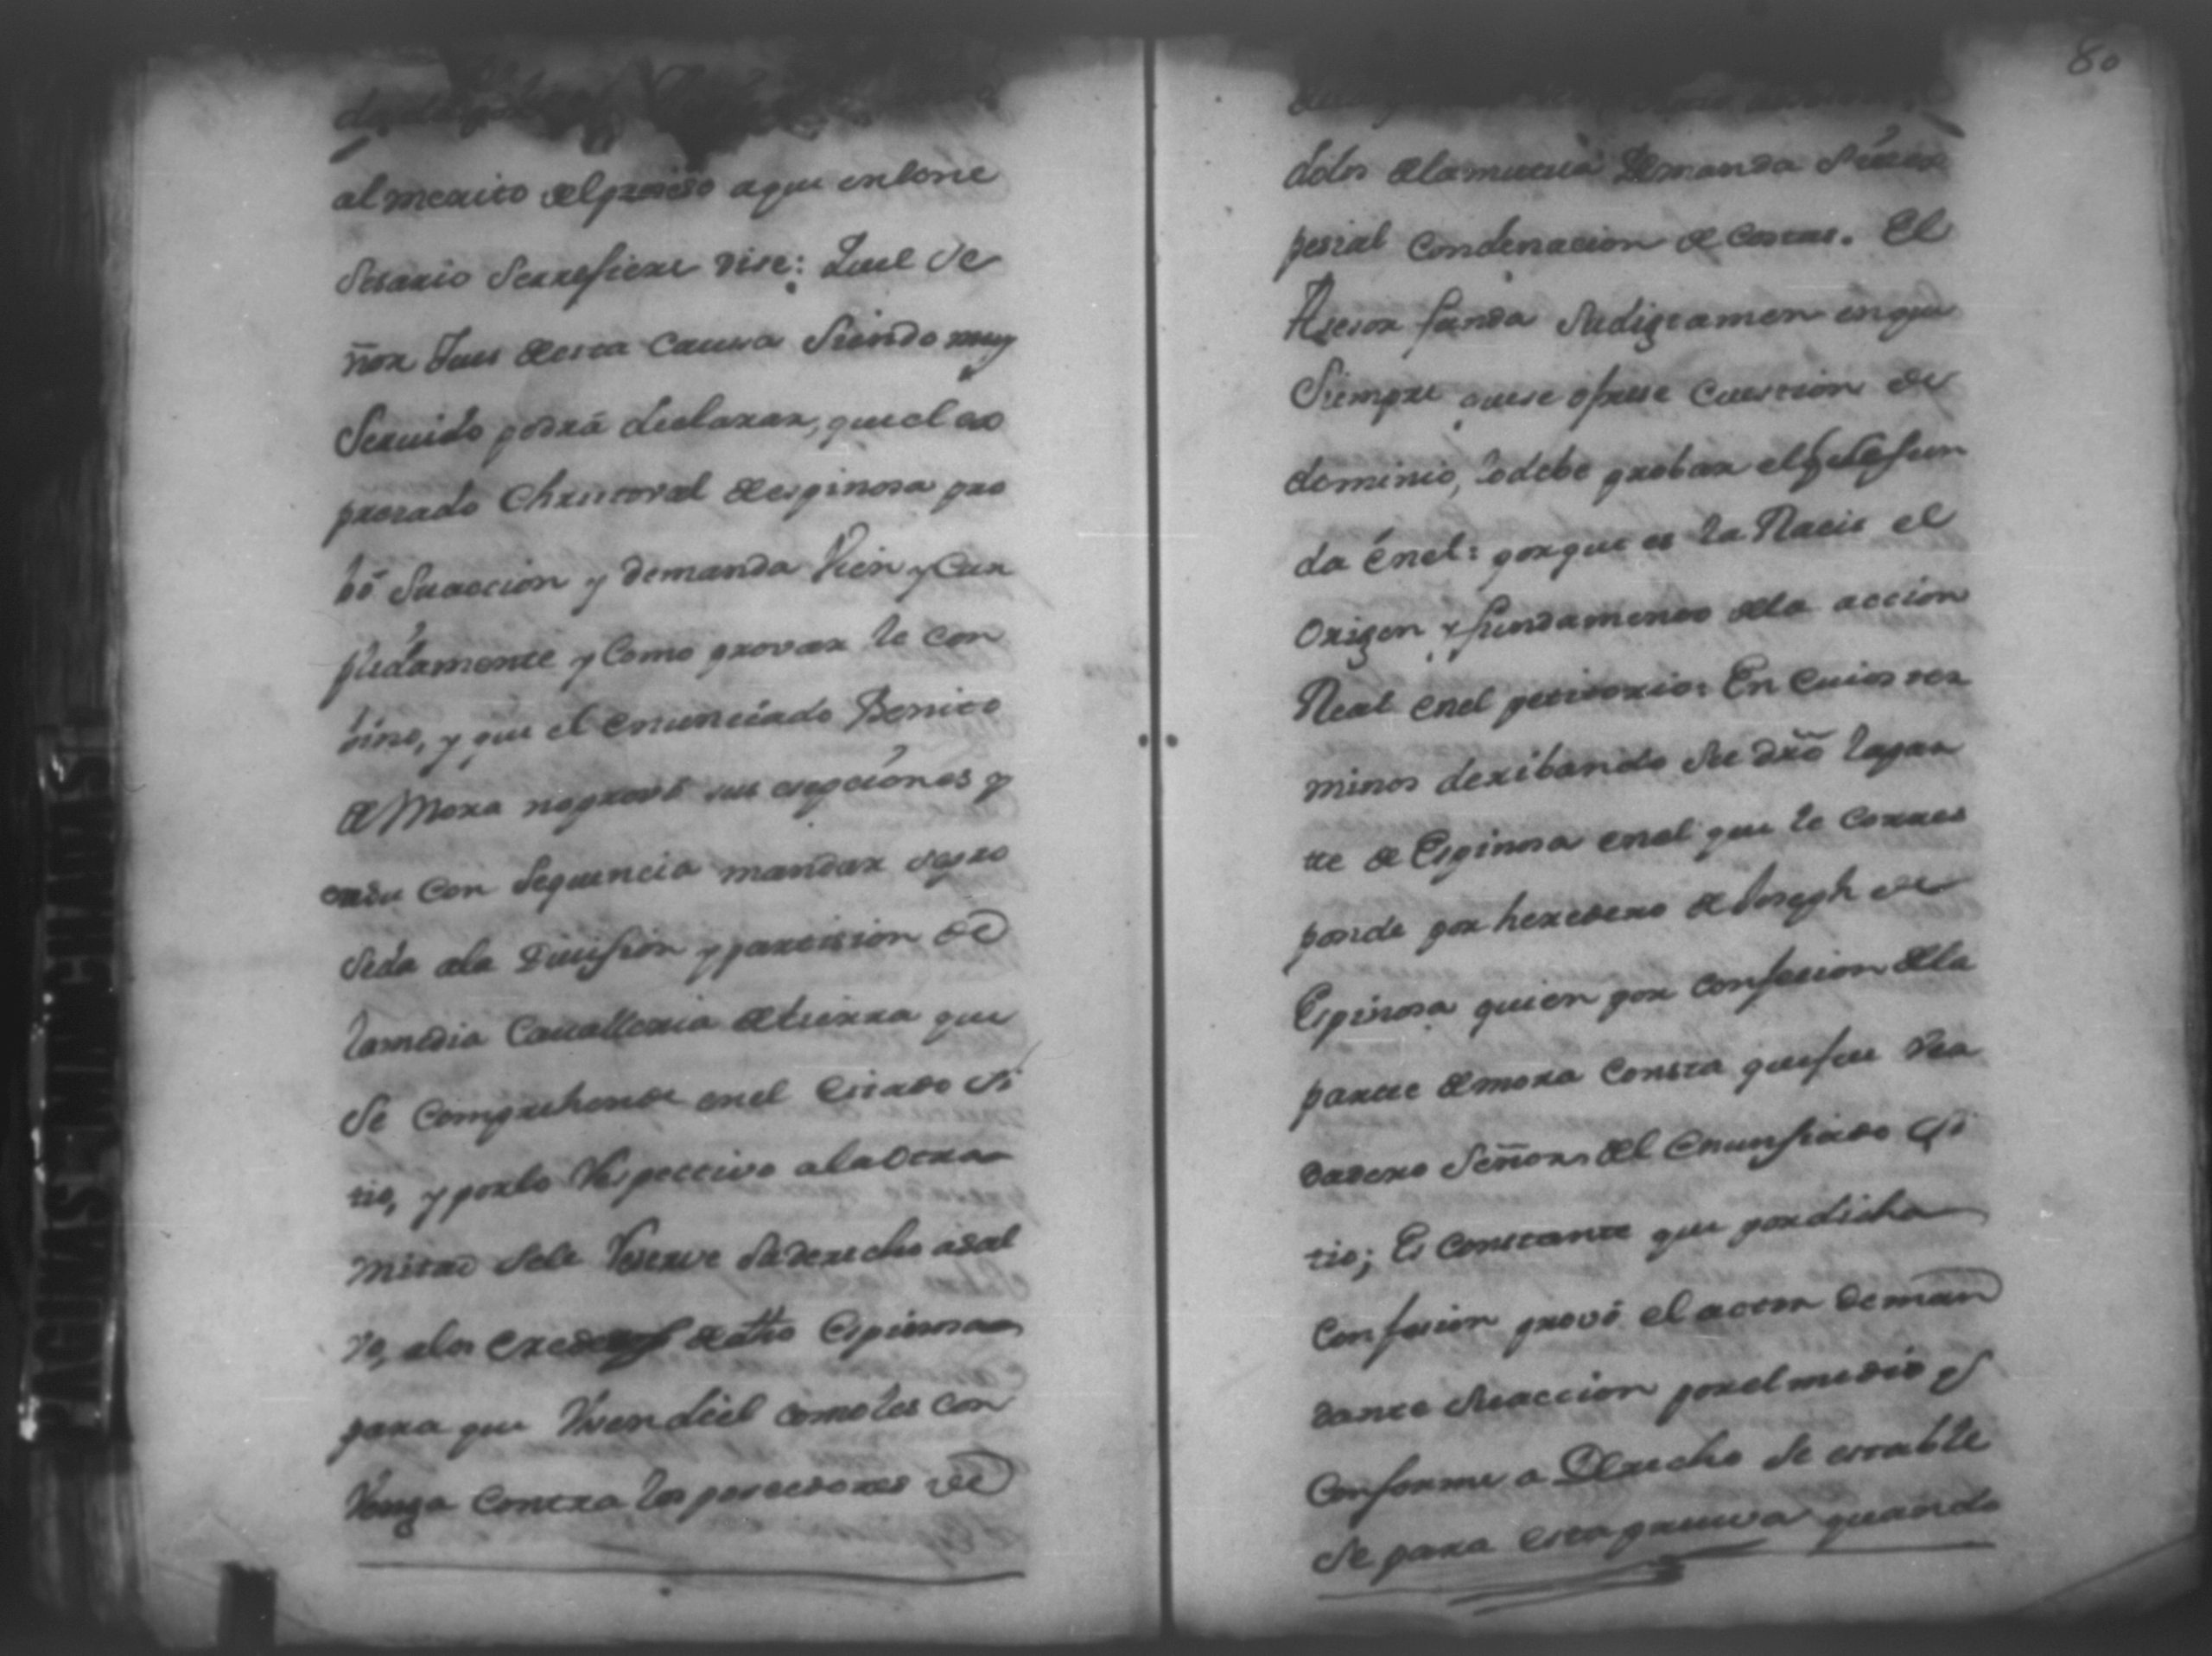 al merito del proceso aque enlone
Sesario Serrefiere dise: Que el Se
ñor Jues desta Causa Siendo muy
Seruido podrá declarar, que el ex
presado Christoval de espinosa pro
bó Su accion y demanda Vien y Cun
plidamente y Como provar le con
bino, y que el enunciado Benito
de Mora no provó sus esepciones y
Con Sequencia mandar se pro
seda ala Diuision y partision de
la media Cauallería de tierra que
Se Comprehende en el citado Si
tio, y porlo Respectivo ala Otra
mitad Sele Reserve Su derecho asal
vo, alos de dho Espinosa
para que Vsen del como les con
Venga Contra los poseedores de
80
dolos de la mutua Demanda Sin es
pesial Condenacion de Costas. El
Asesor funda Su digtamen en que
Siempre que se ofrese Cuestion de
dominio, lo debe probar el que se fun
da en el: porque es la Raeis el
Origen y fundamento dela accion
Real en el petitorio: En Cuios ter
minos deribando Su dro la par
te de Espinosa en el que le Corres
ponde por heredero de Joseph de
Espinosa quien por confesion dela
parte de mora Consta que fue Ver
dadero Señor del Enunsiado Si
tio; Es Constante que por dicha
Confesion provó el actor deman
dante Su accion por el medio q
Conforme a Derecho Se estable
Se para esta prueva quando